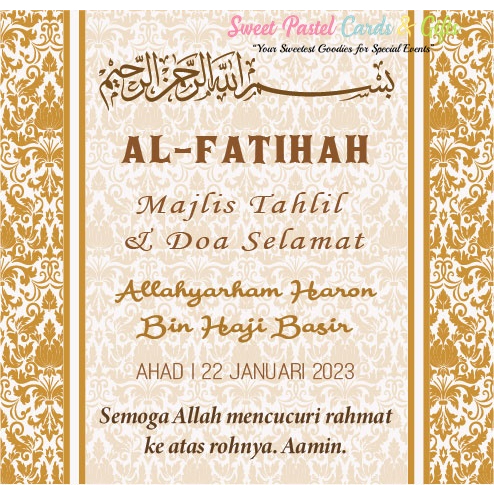 Sweet Pastel Cards & Gifts
"Your Sweetest Goodies for Special Events"
بسم الله الرحمن الرحيم
AL-FATIHAH
Majlis Tahlil
& Doa Selamat
Allahyarham Haron
Bin Haji Basir
AHAD | 22 JANUARI 2023
Semoga Allah mencucuri rahmat
ke atas rohnya. Aamin.